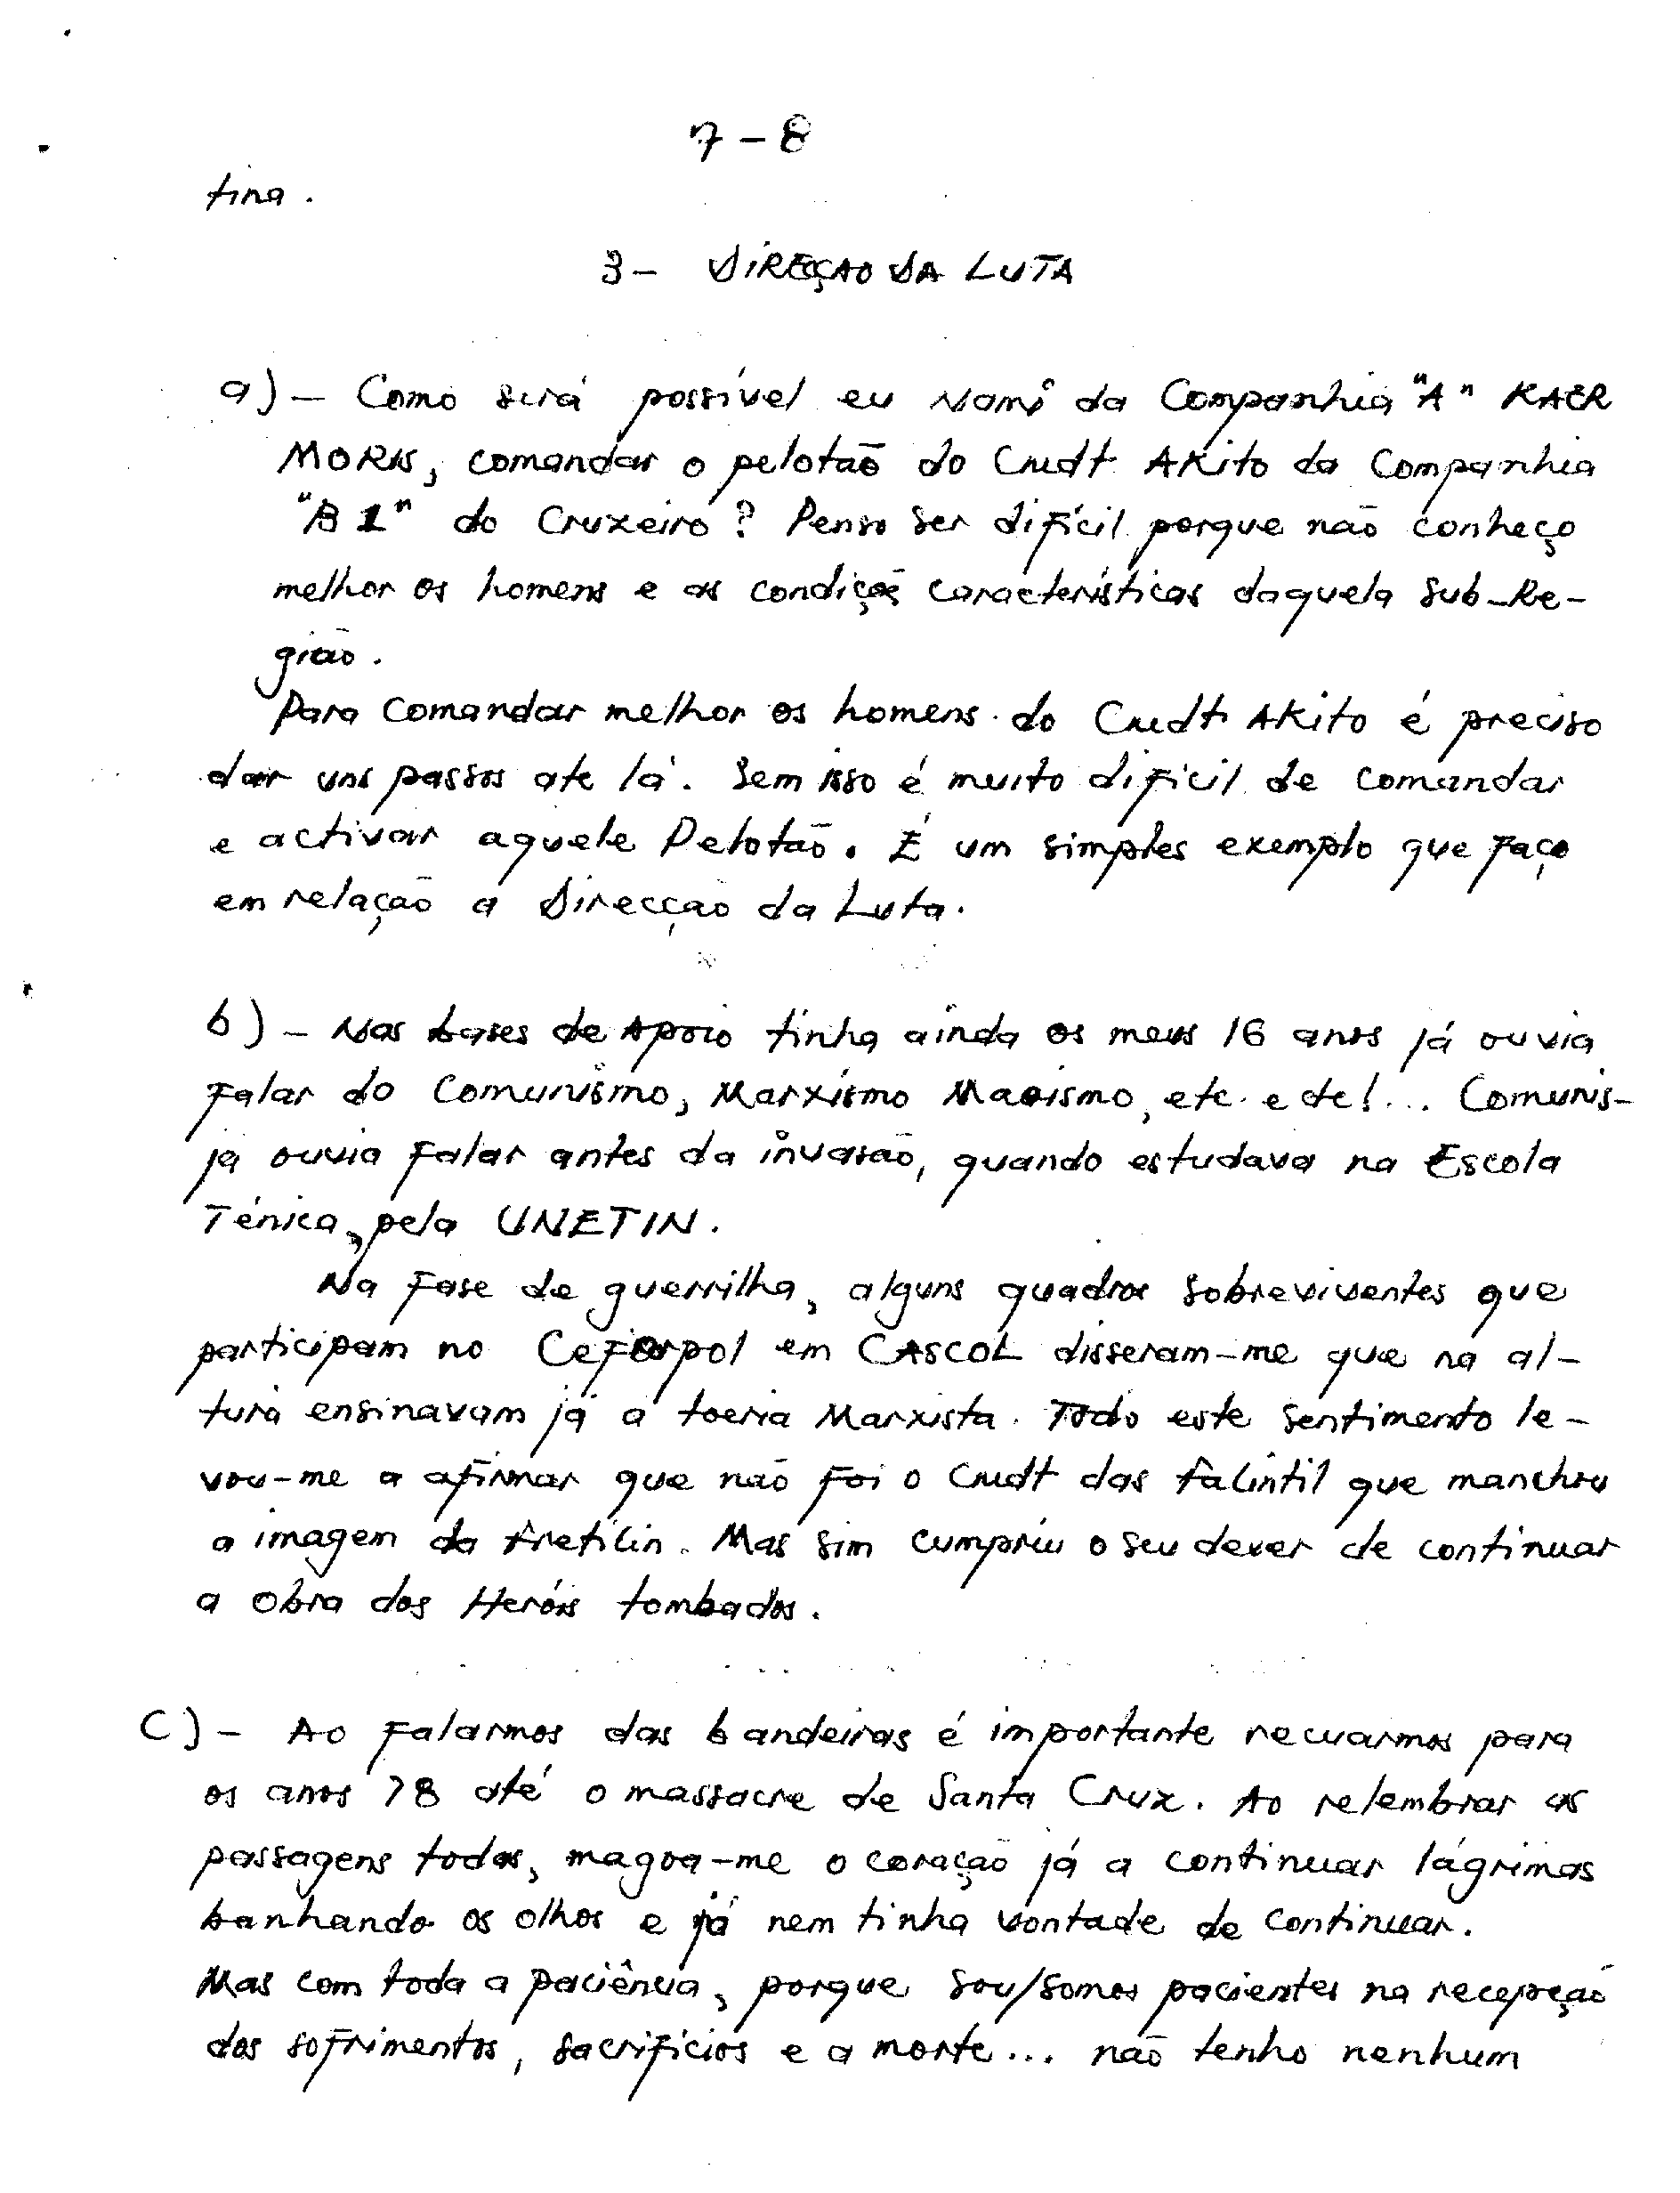 7 - 8
tina.
3 - DIREÇÃO DA LUTA
a) - Como será possível eu Nomi da Companhia "A" KAER
MORIS, comandar o pelotão do Cmdt Akito da Companhia
"B 1" do Cruxeiro? Penso ser difícil porque não conheço
melhor os homens e as condiçõe características daquela Sub-Re-
gião.
Para comandar melhor os homens do Cmdt Akito é preciso
dar uns passos ate lá. Sem isso é muito difícil de comandar
e activar aquele Pelotão. É um simples exemplo que faço
em relação a Direcção da Luta.
b) - Nas bases de Apoio tinha ainda os meus 16 anos já ouvia
falar do Comunismo, Marxismo Maoismo, etc. e etc!... Comunis-
já ouvia falar antes da invasão, quando estudava na Escola
Ténica, pela UNETIN.
Na fase de guerrilha, alguns quadros sobreviventes que
participam no Ceforpol em CASCOL disseram-me que na al-
tura ensinavam já a toeria Marxista. Todo este sentimento le-
vou-me a afirmar que não foi o Cmdt das Falintil que manchou
a imagem da Fretilin. Mas sim cumpriu o seu dever de continuar
a Obra dos Heróis tombados.
C) - Ao falarmos das bandeiras é importante recuarmos para
os anos 78 até o massacre de Santa Crux. Ao relembrar as
passagens todas, magoa-me o coração já a continuar lágrimas
banhando os olhos e já nem tinha vontade de continuar.
Mas com toda a paciência, porque sou/somos pacientes na recepção
dos sofrimentos, sacrifícios e a morte... não tenho nenhum